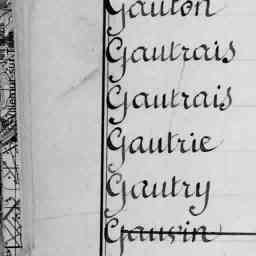 Gauton
Gautrais
Gautrais
Gautrie
Gautry
Gauvin